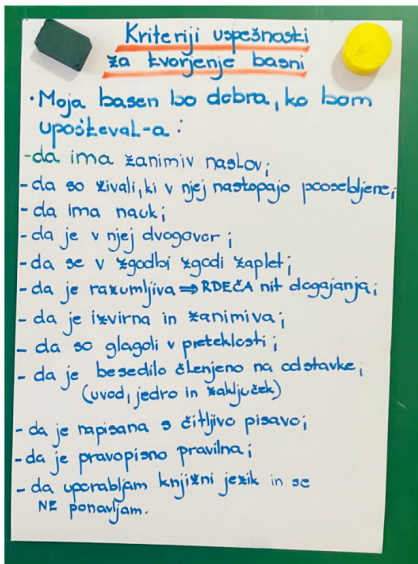 Kriteriji uspešnosti
za tvorjenje basni
• Moja basen bo dobra, ko bom
upošteval-a :
- da ima zanimiv naslov;
- da so živali, ki v njej nastopajo poosebljene;
- da ima nauk;
- da je v njej dvogovor;
- da se v zgodbi zgodi zaplet;
- da je razumljiva ⇒ RDEČA nit dogajanja;
- da je izvirna in zanimiva;
- da so glagoli v preteklosti;
- da je besedilo členjeno na odstavke;
(uvod, jedro in zaključek)
- da je napisana s čitljivo pisavo;
- da je pravopisno pravilna;
- da uporabljam knjižni jezik in se
NE ponavljam.